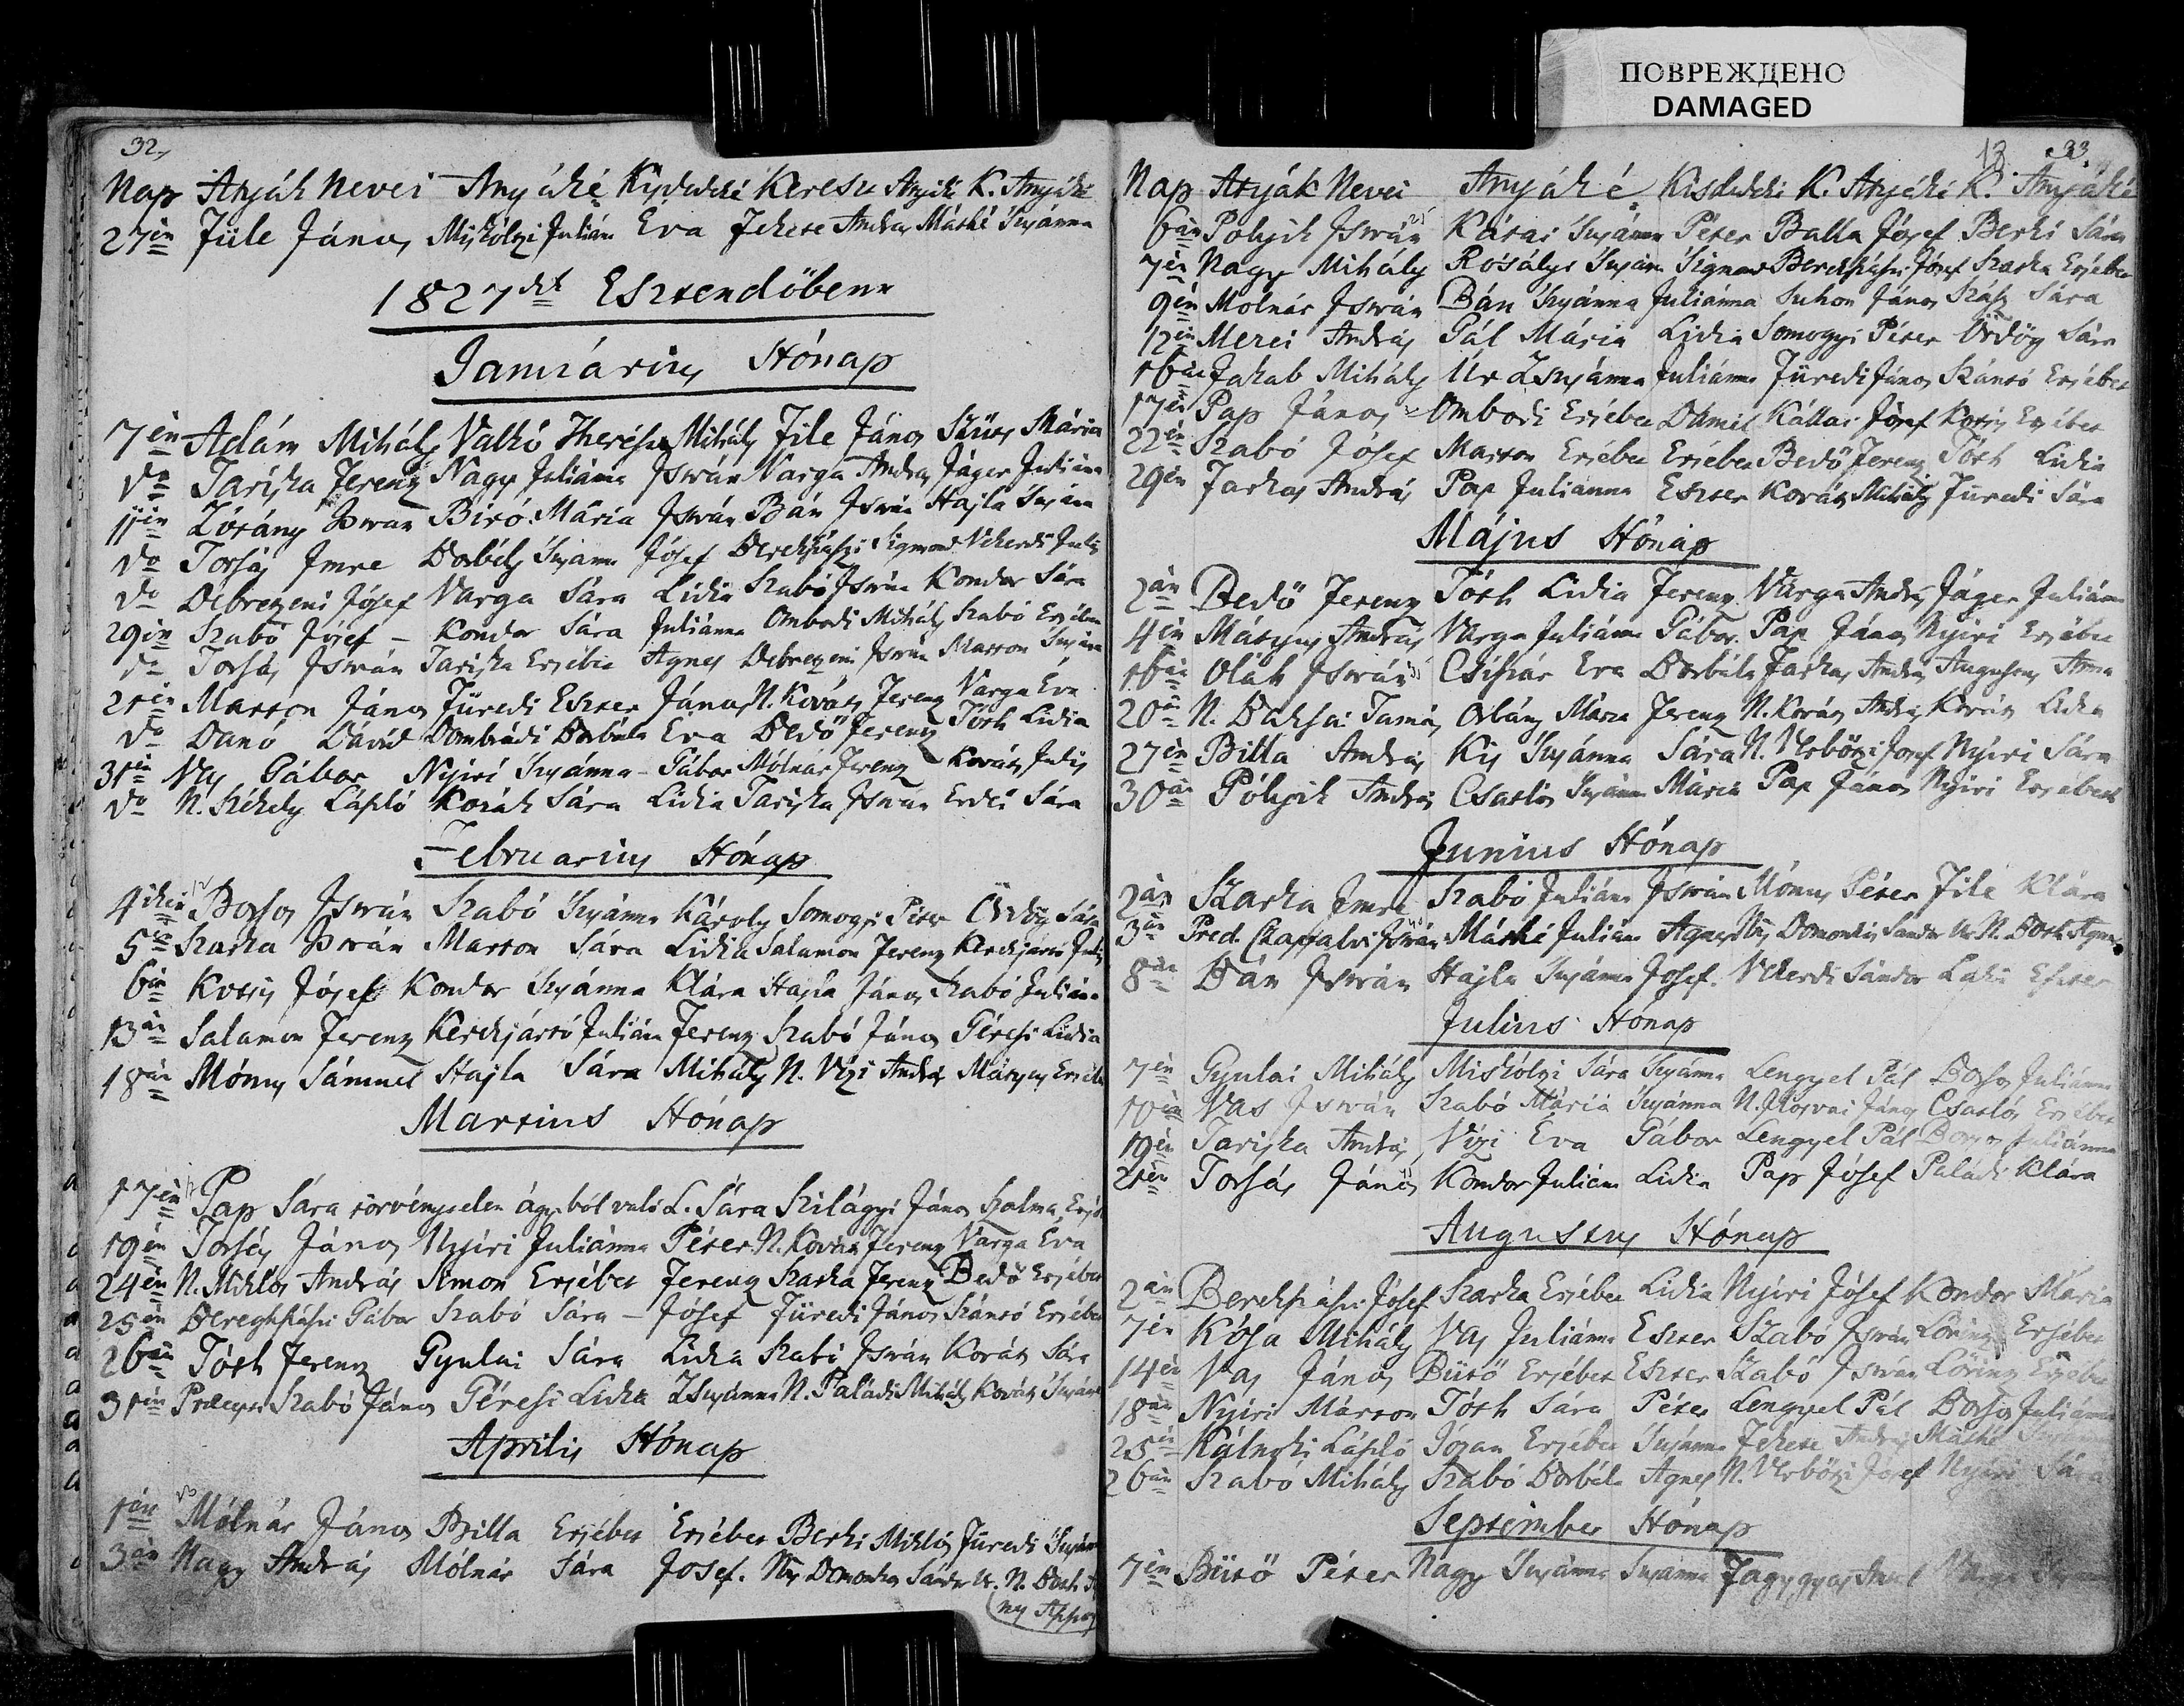 ПОВРЕЖДЕНО
DAMAGED
32.
Nap Atyák Nevei Anyáké Kisdedeké Kereszt Atyáké K. Anyáké
27én Füle János Miskólczi Juliána Eva Fekete András Máthé Susánna
1827dik Esztendöbenn
Januárius Hónap
7én Adám Mihály Valkó Therésia Mihály File János Szüts Mária
do Tariska Ferencz Nagy Juliánna István Varga András Jáger Juliánna
11én Zórány István Biró Mária István Bán István Hajla Susánna
do Forsás Imre Borbély Susánna Jósef Bereghszászi Sigmond Vekerdi Julis
do Debreczeni Jósef Varga Sára Lidia Szabó István Kondor Sára
29én Szabó Jósef - Kondor Sára Juliánna Ombodi Mihály Szabó Ersébet
do Forsás István Tariska Ersébet Agnes Debreczeni István Marton Susánna
21én Marton János Füredi Eszter János N. Kováts Ferencz Varga Éva
do Danó Dávid Dombrádi Borbála Eva Bedő Ferencz Tóth Lidia
31én Vas Gábor Nyiri Susánna - Gábor Mólnár Ferencz Kováts Julis
do N. Székely László Kozák Sára Lidia Tariska István Erdei Sára
Februarius Hónap
4dikén Borsos István Szabó Susánna Károly Somogyi Péter Ördög Sára
5én Szarka István Marton Sára Lidia Salamon Ferencz Kerekjártó Julis
6án Kotsis Jósef Kondor Susánna Klára Hajla János Szabó Juliánna
13án Salamon Ferencz Kerekjártó Juliána Ferencz Szabó János Géresi Lidia
18án Mónus Sámuel Hajla Sára Mihály N. Vizi András Mátyus Ersébet
Martius Hónap
17én Pap Sára törvénytelen ágyból való L. Sára Szilágyi János Szalma Ersé
19én Forsás János Nyiri Juliánna Péter N. Kováts Ferencz Varga Éva
24én N. Miklós András Simon Ersébet Ferencz Szarka Ferencz Bedő Ersébet
25én Bereghszászi Gábor Szabó Sára - Jósef Füredi János Szántó Ersébet
26án Tóth Ferencz Gyulai Sára Lidia Szabó István Kováts Sára
31én Szabó János Géresi Lidia Zsusánna N. Paládi Mihály Kováts Susánna
Aprilis Hónap
1én Mólnár János Billa Ersébet Ersébet Berki Miklós Füredi Susánna
3án Nagy András Mólnár Sára Josef. Domonkos Sándor Ur. N. Both
13 33.
Nap Atyák Nevei Anyáké Kisdedeké K. Atyáké K. Anyáké
6án István Susánna Péter Balla Jósef Berki Sára
7én Nagy Mihály Susána Sigmond Bereghszászi Jósef Szarka Ersébet
9én Molnár István Bán Susánna Juliánna Suhon János Szász Sára
12én Merei András Gál Mária Lidia Somogyi Péter Ördög Sára
16án Jakab Mihály Úr Zsusánna Juliánna Füredi János Szántó Ersébet
17én Pap János Ombodi Ersébet Dániel Kállai Jósef Kotsis Ersébet
22én Szabó Jósef Marton Ersébet Ersébet Bedő Ferencz Tóth Lidia
29én Farkas András Pap Juliánna Eszter Kováts Mihály Füredi Sára
Május Hónap
2án Bedő Ferencz Tóth Lidia Ferencz Varga András Jáger Juliánna
4én Mátyus András Varga Juliánna Gábor. Pap János Nyiri Ersébet
16án Oláh István Csiszár Eva Borbála Farkas András Anna
20án N. Baksai Tamás Orbány Mária Ferencz N. Kováts András Kováts Lidia
27én Billa András Kis Susánna Sára N. Verbőtzi Josef Nyiri Sára
30án András Csatlós Susánna Mária Pap János Nyiri Ersébet
Junius Hónap
2án Szarka Imre Szabó Juliána István Mónus Péter File Klára
3án Pred. István Máthé Juliána Agnes Domonkos Sándor Ur N. Both Agnes
8án Bán István Hajla Susánna Josef. Vekerdi Sándor Laki Eszter
Julius Hónap
7én Gyulai Mihály Miskólczi Sára Susánna Lengyel Pál Borsos Juliánna
10én Vas István Szabó Mária Susánna N. Ilosvai János Csatlós Ersébet
19én Tariska András Vizi Eva Gábor Lengyel Pál Borsos Juliánna
21én Forsás János Kondor Juliána Lidia Pap Jósef Paládi Klára
Augustus Hónap
2án Bereghszászi Jósef Szarka Ersébet Lidia Nyiri Jósef Kondor Mária
7én Kósa Mihály Vas Juliánna Eszter Szabó István Lörincz Ersébet
14én Vas János Bütö Ersébet Eszter Szabó István Lörincz Ersébet
18án Nyiri Márton Tóth Sára Péter Lengyel Pál Borsos Juliánna
25én László Ersébet Susánna Fekete András Máthé
26án Szabó Mihály Szabó Borbála Agnes N. Verbőtzi Jósef Nyiri Sára
September Hónap
7én Bütö Péter Nagy Susánna Susanna Varga